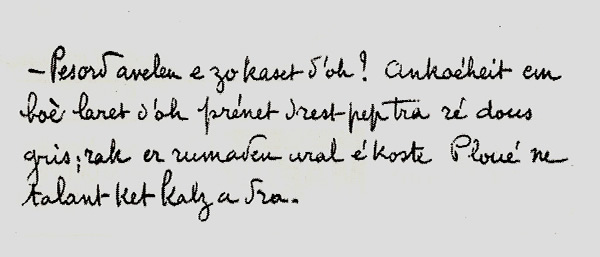 – Pesord avaleu e zo kaset d'oh! Ankoéheit em
boè laret d'oh prénet drest pep tra ré dous
gris; rak er rumadeu ural é koste Ploué ne
talant ket kalz a dra.